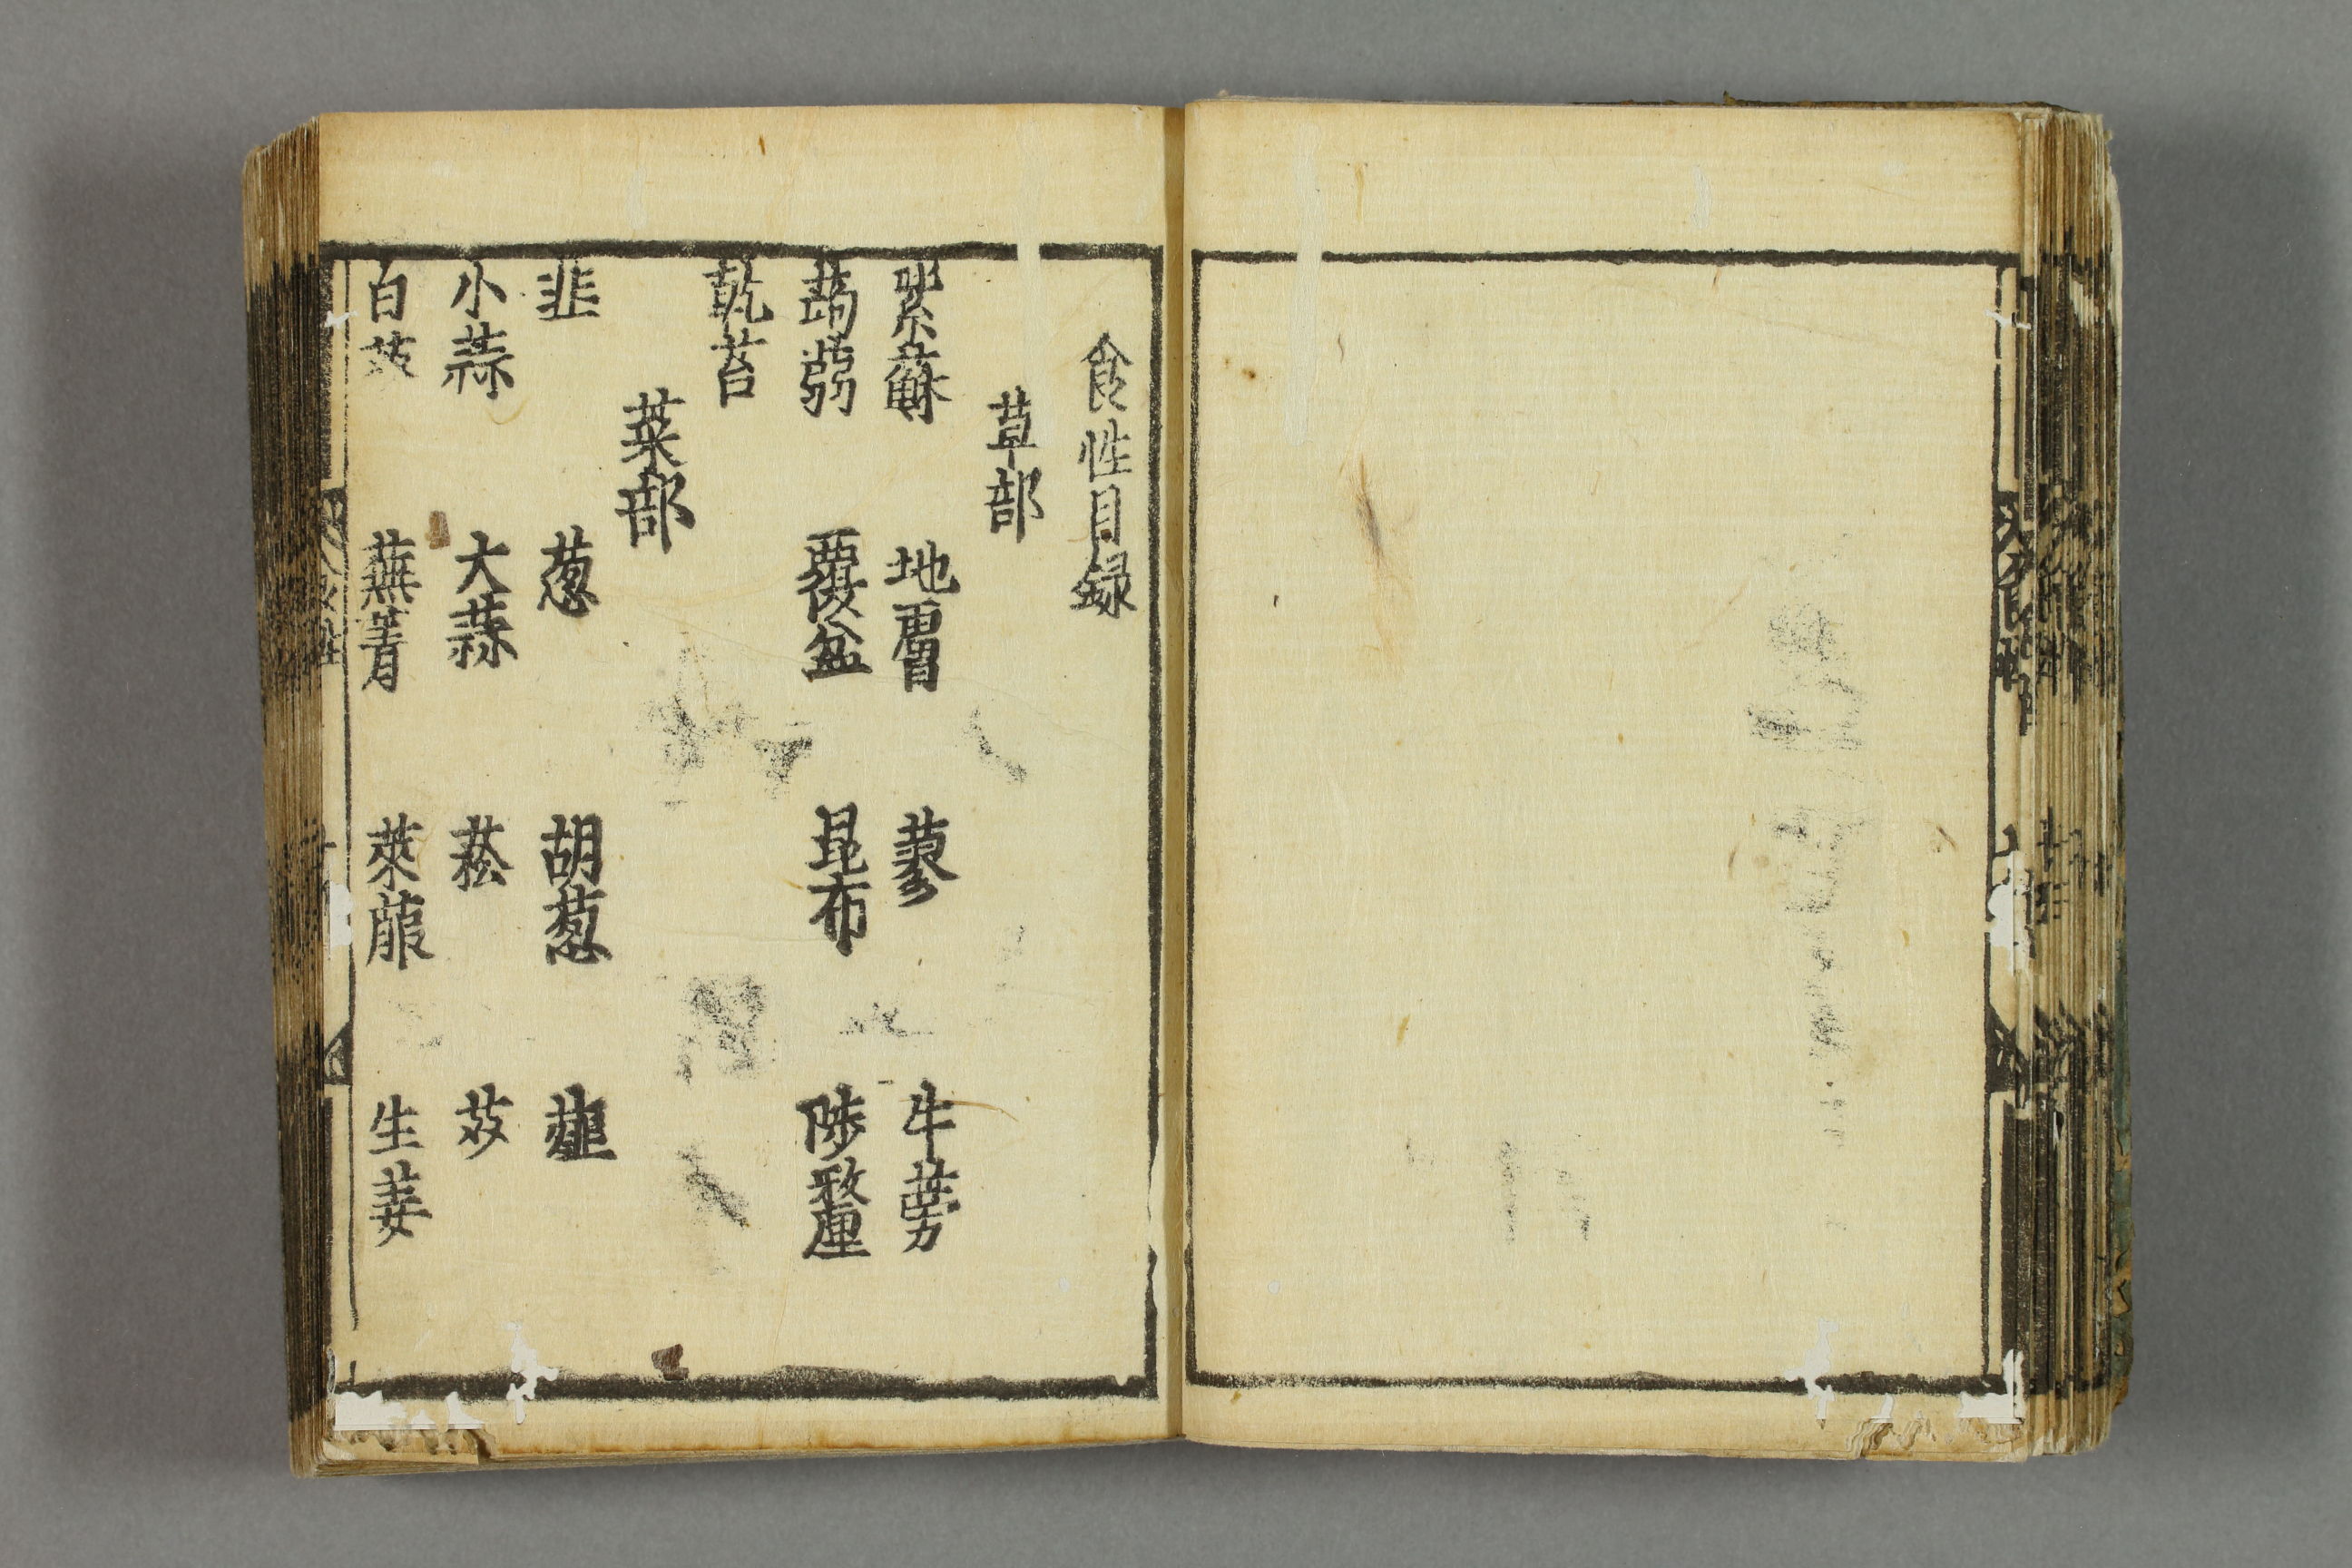 食性目録
草部
紫蘇　地膚　蓼　牛蒡
蒟蒻　覆盆　昆布　陟釐
乾苔
菜部
韭　葱　胡葱　薤
小蒜　大蒜　菘　芥
白芥　蕪菁　萊菔　生姜